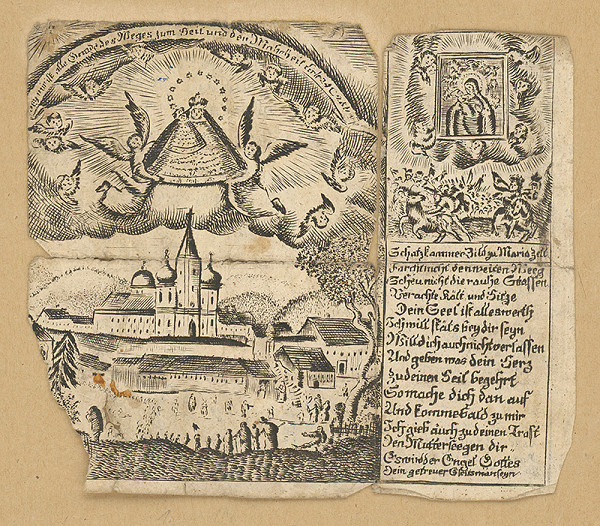 mir ist alle Gnade des Weges zum Heil und der Wahrheit und des Lebens
Schatzkammer Bild zu Maria Zell
Fürcht nicht den weiten Weeg
Scheu nicht die rauhe Strassen
Verachte Kält und Hitze
Dein Seel ist alles werth
Ich will stäts bey dir seyn
Will dich auch nicht verlassen
Und geben was dein Herz
Zu deinen Heil begehrt
So mache dich dan auf
Und komme bald zu mir
Ich gieb auch zu deinen Trost
Den Mutterseegen dir
Es wird der Engel Gottes
Dein getreuer Gleitsman seyn